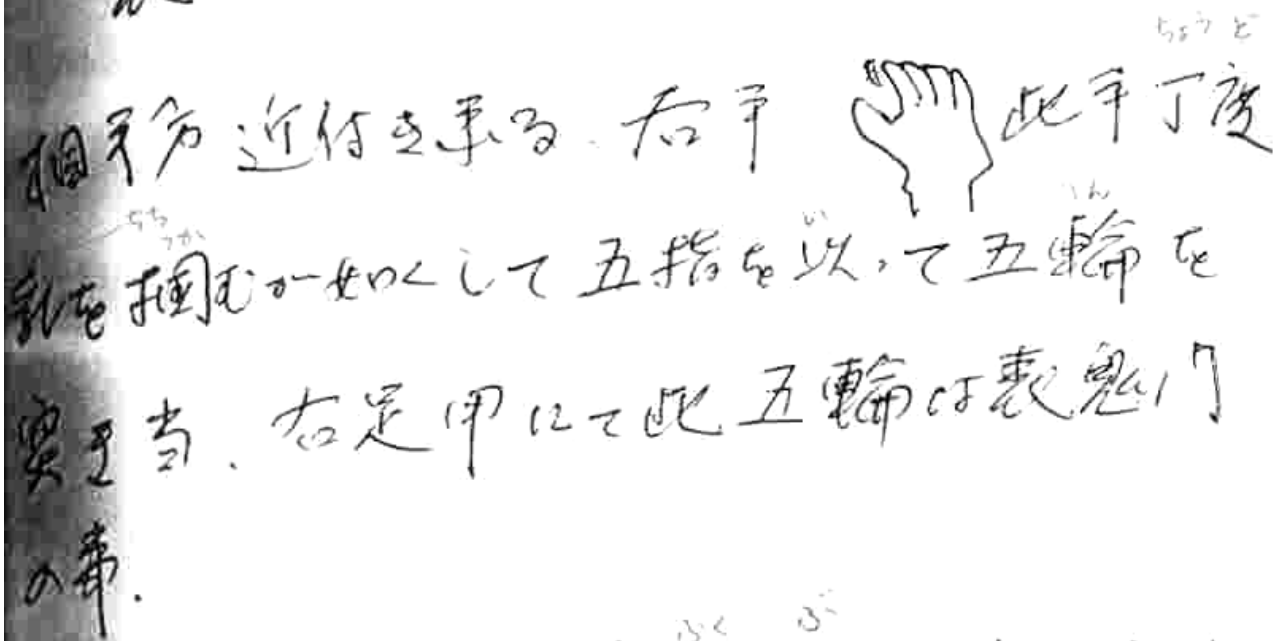 ちょうど
相手方近付き来る、右手 此手丁度
ちち つか い りん
乳を掴むが如くして五指を以って五輪を
突き当、右足甲にて此五輪は裏鬼門
の事.
ふく ぶ